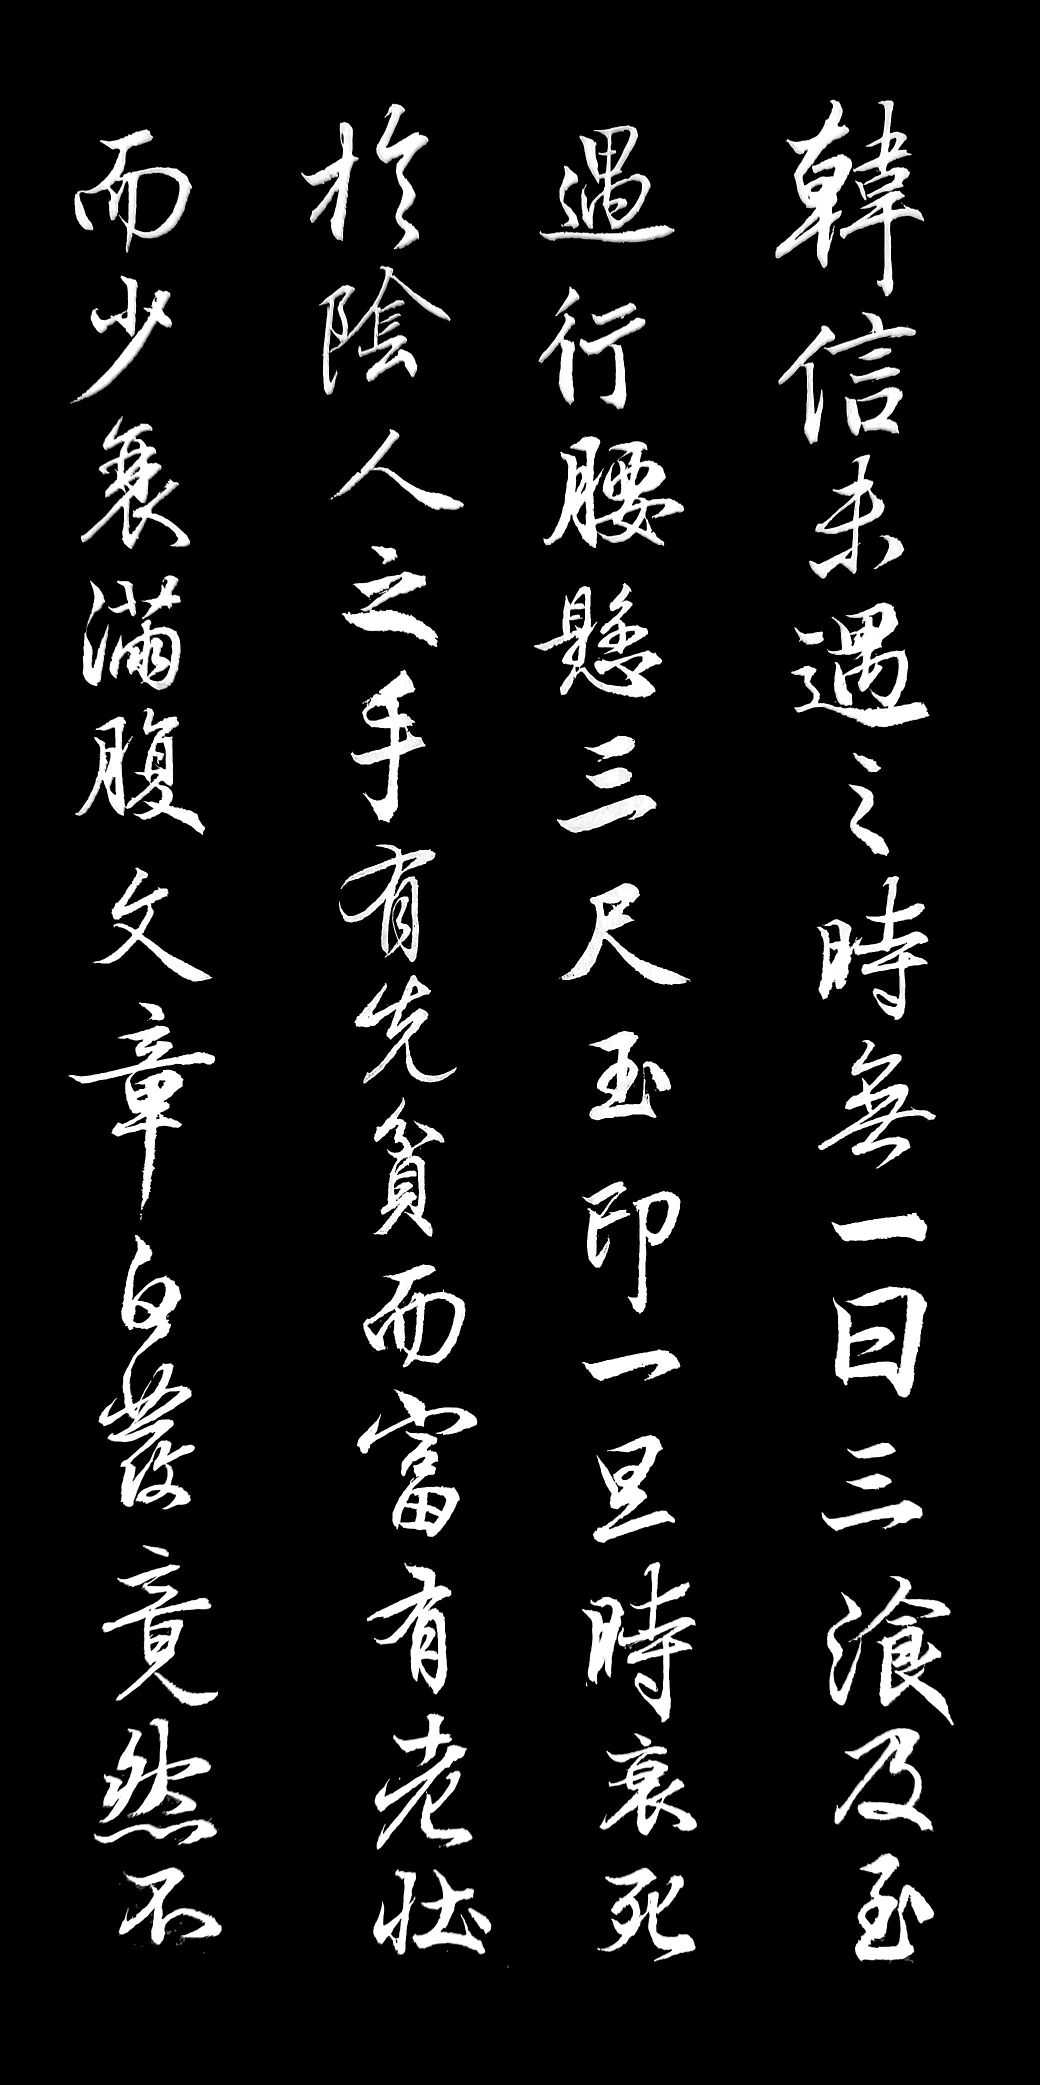 韓信未遇之時無一日三飡及至
遇行腰懸三尺玉印一旦時衰死
於陰人之手有先貧而富有老壯
而少衰滿腹文章白髮竟然不